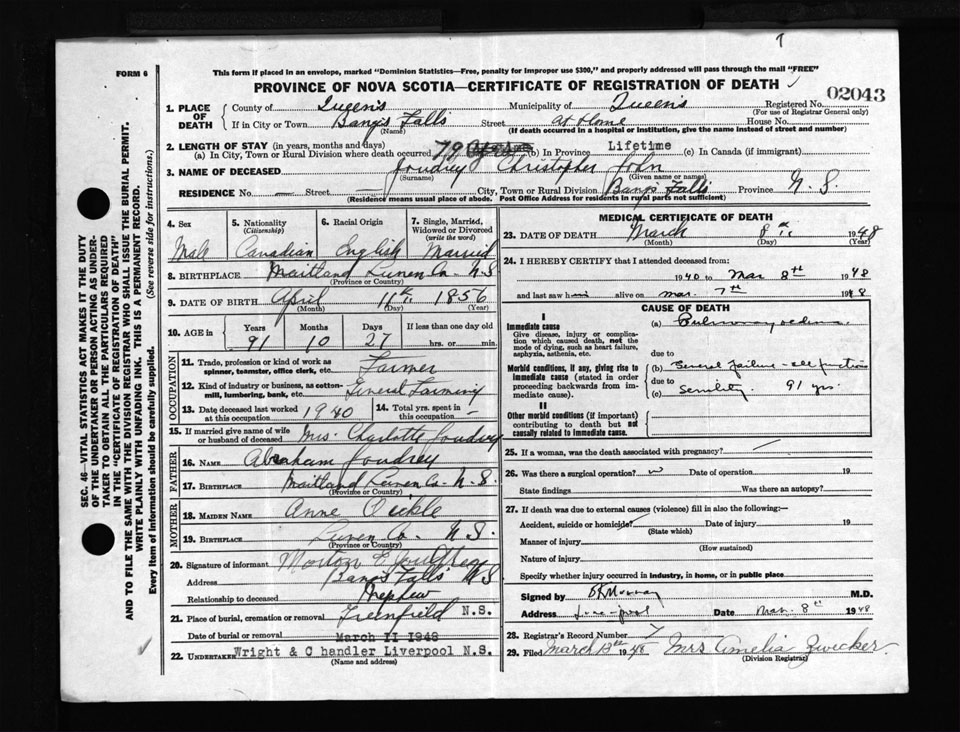 FORM 6
This form if placed in an envelope, marked "Dominion Statistics—Free, penalty for improper use $300," and properly addressed will pass through the mail "FREE"
PROVINCE OF NOVA SCOTIA—CERTIFICATE OF REGISTRATION OF DEATH
02043
1. PLACE OF DEATH County of Queens Municipality of Queens Registered No.
(For use of Registrar General only)
If in City or Town Bangs Falls Street at Home House No.
(Name) (If death occurred in a hospital or institution, give the name instead of street and number)
2. LENGTH OF STAY (in years, months and days)
(a) In City, Town or Rural Division where death occurred 79 (b) In Province Lifetime (c) In Canada (if immigrant)
3. NAME OF DECEASED Joudrey Christopher John
(Surname) (Given name or names)
RESIDENCE No. — Street — City, Town or Rural Division Bangs Falls Province N.S.
(Residence means usual place of abode. Post Office Address for residents in rural parts not sufficient)
4. Sex Male
5. Nationality (Citizenship) Canadian
6. Racial Origin English
7. Single, Married, Widowed or Divorced (write the word) Married
8. BIRTHPLACE Maitland Lunen Co- N.S
(Province or Country)
9. DATE OF BIRTH April 11th 1856
(Month) (Day) (Year)
10. AGE in Years Months Days If less than one day old
91 10 27 hrs. or min.
OCCUPATION
11. Trade, profession or kind of work as spinner, teamster, office clerk, etc. Farmer
12. Kind of industry or business, as cotton-mill, lumbering, bank, etc. General Farming
13. Date deceased last worked at this occupation 1940
14. Total yrs. spent in this occupation -
15. If married give name of wife or husband of deceased Mrs. Charlotte Joudrey
FATHER
16. NAME Abraham Joudrey
17. BIRTHPLACE Maitland Lunen Co- N.S.
(Province or Country)
MOTHER
18. MAIDEN NAME Anne Veickle
19. BIRTHPLACE Lunen Co. N.S.
(Province or Country)
20. Signature of informant Morton E
Address Bangs Falls N S
Relationship to deceased Nephew
21. Place of burial, cremation or removal Greenfield N.S.
Date of burial or removal March 11 1948
22. UNDERTAKER Wright & Chandler Liverpool N.S.
(Name and address)
MEDICAL CERTIFICATE OF DEATH
23. DATE OF DEATH March 8th 1948
(Month) (Day) (Year)
24. I HEREBY CERTIFY that I attended deceased from:
1940 to Mar 8th 1948
and last saw him alive on Mar. 7th 1948
CAUSE OF DEATH
I
Immediate cause
Give disease, injury or complication which caused death, not the mode of dying, such as heart failure, asphyxia, asthenia, etc.
(a) Pulmonary oedema.
due to
Morbid conditions, if any, giving rise to immediate cause (stated in order proceeding backwards from immediate cause).
General failure - all functions
due to
(c) Senility 91 yrs.
II
Other morbid conditions (if important) contributing to death but not causally related to immediate cause.
25. If a woman, was the death associated with pregnancy?
26. Was there a surgical operation? Date of operation 19
State findings Was there an autopsy?
27. If death was due to external causes (violence) fill in also the following:—
Accident, suicide or homicide? Date of injury 19
(State which)
Manner of injury
(How sustained)
Nature of injury
Specify whether injury occurred in industry, in home, or in public place
Signed by Murray M.D.
Address Date Mar. 8th 1948
28. Registrar's Record Number 7
29. Filed March 13th 1948 Mrs Amelia Zwicker.
(Division Registrar)
SEC. 46—VITAL STATISTICS ACT MAKES IT THE DUTY
OF THE UNDERTAKER OR PERSON ACTING AS UNDER-
TAKER TO OBTAIN ALL THE PARTICULARS REQUIRED
IN THE "CERTIFICATE OF REGISTRATION OF DEATH"
AND TO FILE THE SAME WITH THE DIVISION REGISTRAR WHO SHALL ISSUE THE BURIAL PERMIT.
WRITE PLAINLY WITH UNFADING INK. THIS IS A PERMANENT RECORD.
Every item of information should be carefully supplied. (See reverse side for instructions.)